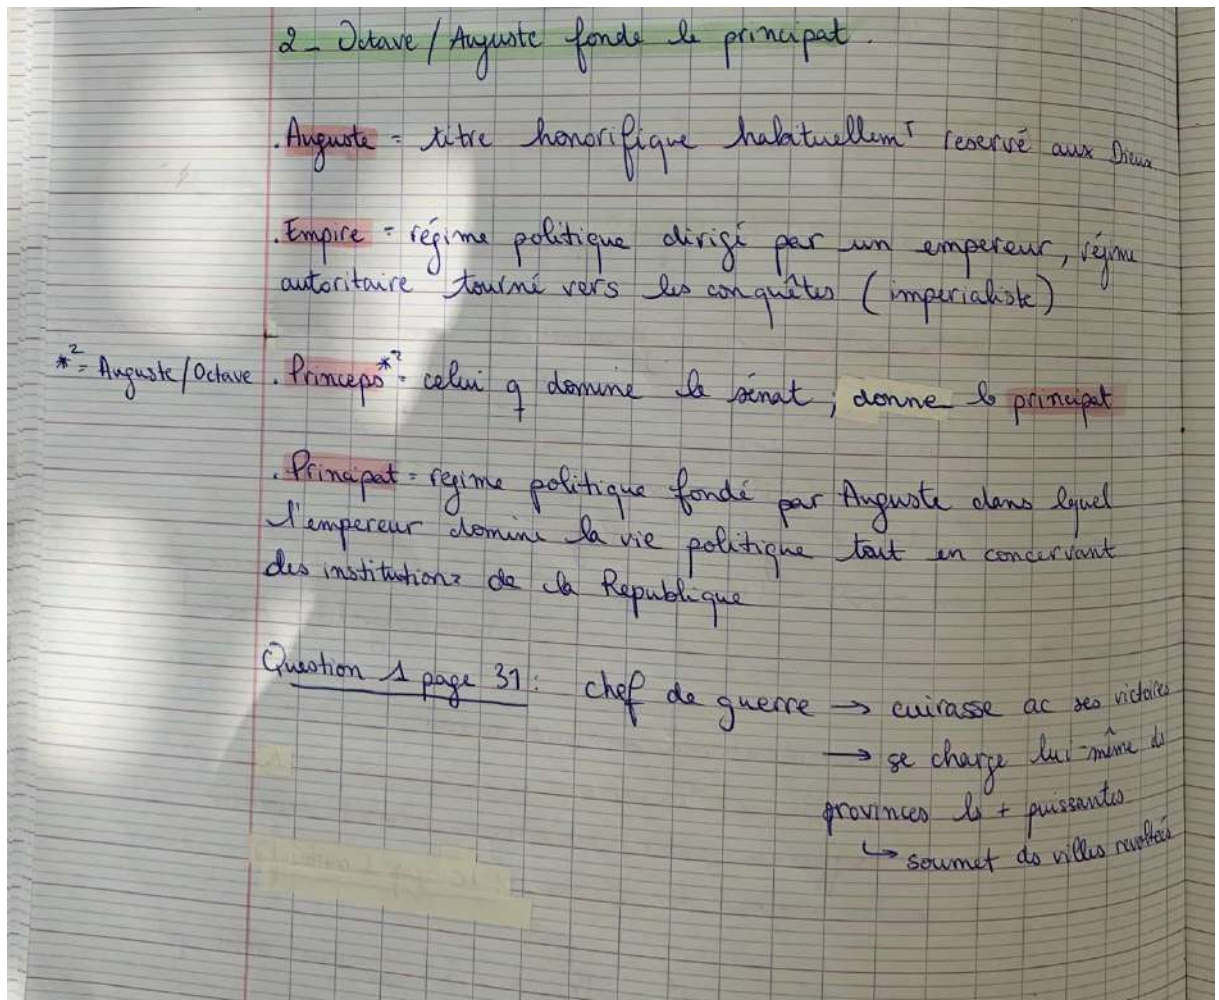 2_ Octave/Auguste fonde le principat.
. Auguste = titre honorifique habituellemT reservé aux Dieux
. Empire = régime politique dirigé par un empereur, régime
autoritaire tourné vers les conquêtes (imperialiste)
*² = Auguste/Octave . Princeps*² = celui q domine le sénat ; donne le principat
. Principat = regime politique fondé par Auguste dans lequel
l'empereur domine la vie politique tout en concervant
des institutions de la Republique
Question 1 page 31 : chef de guerre → cuirasse ac ses victoires
→ se charge lui-même ds
provinces ls + puissantes
↳ soumet ds villes revoltées